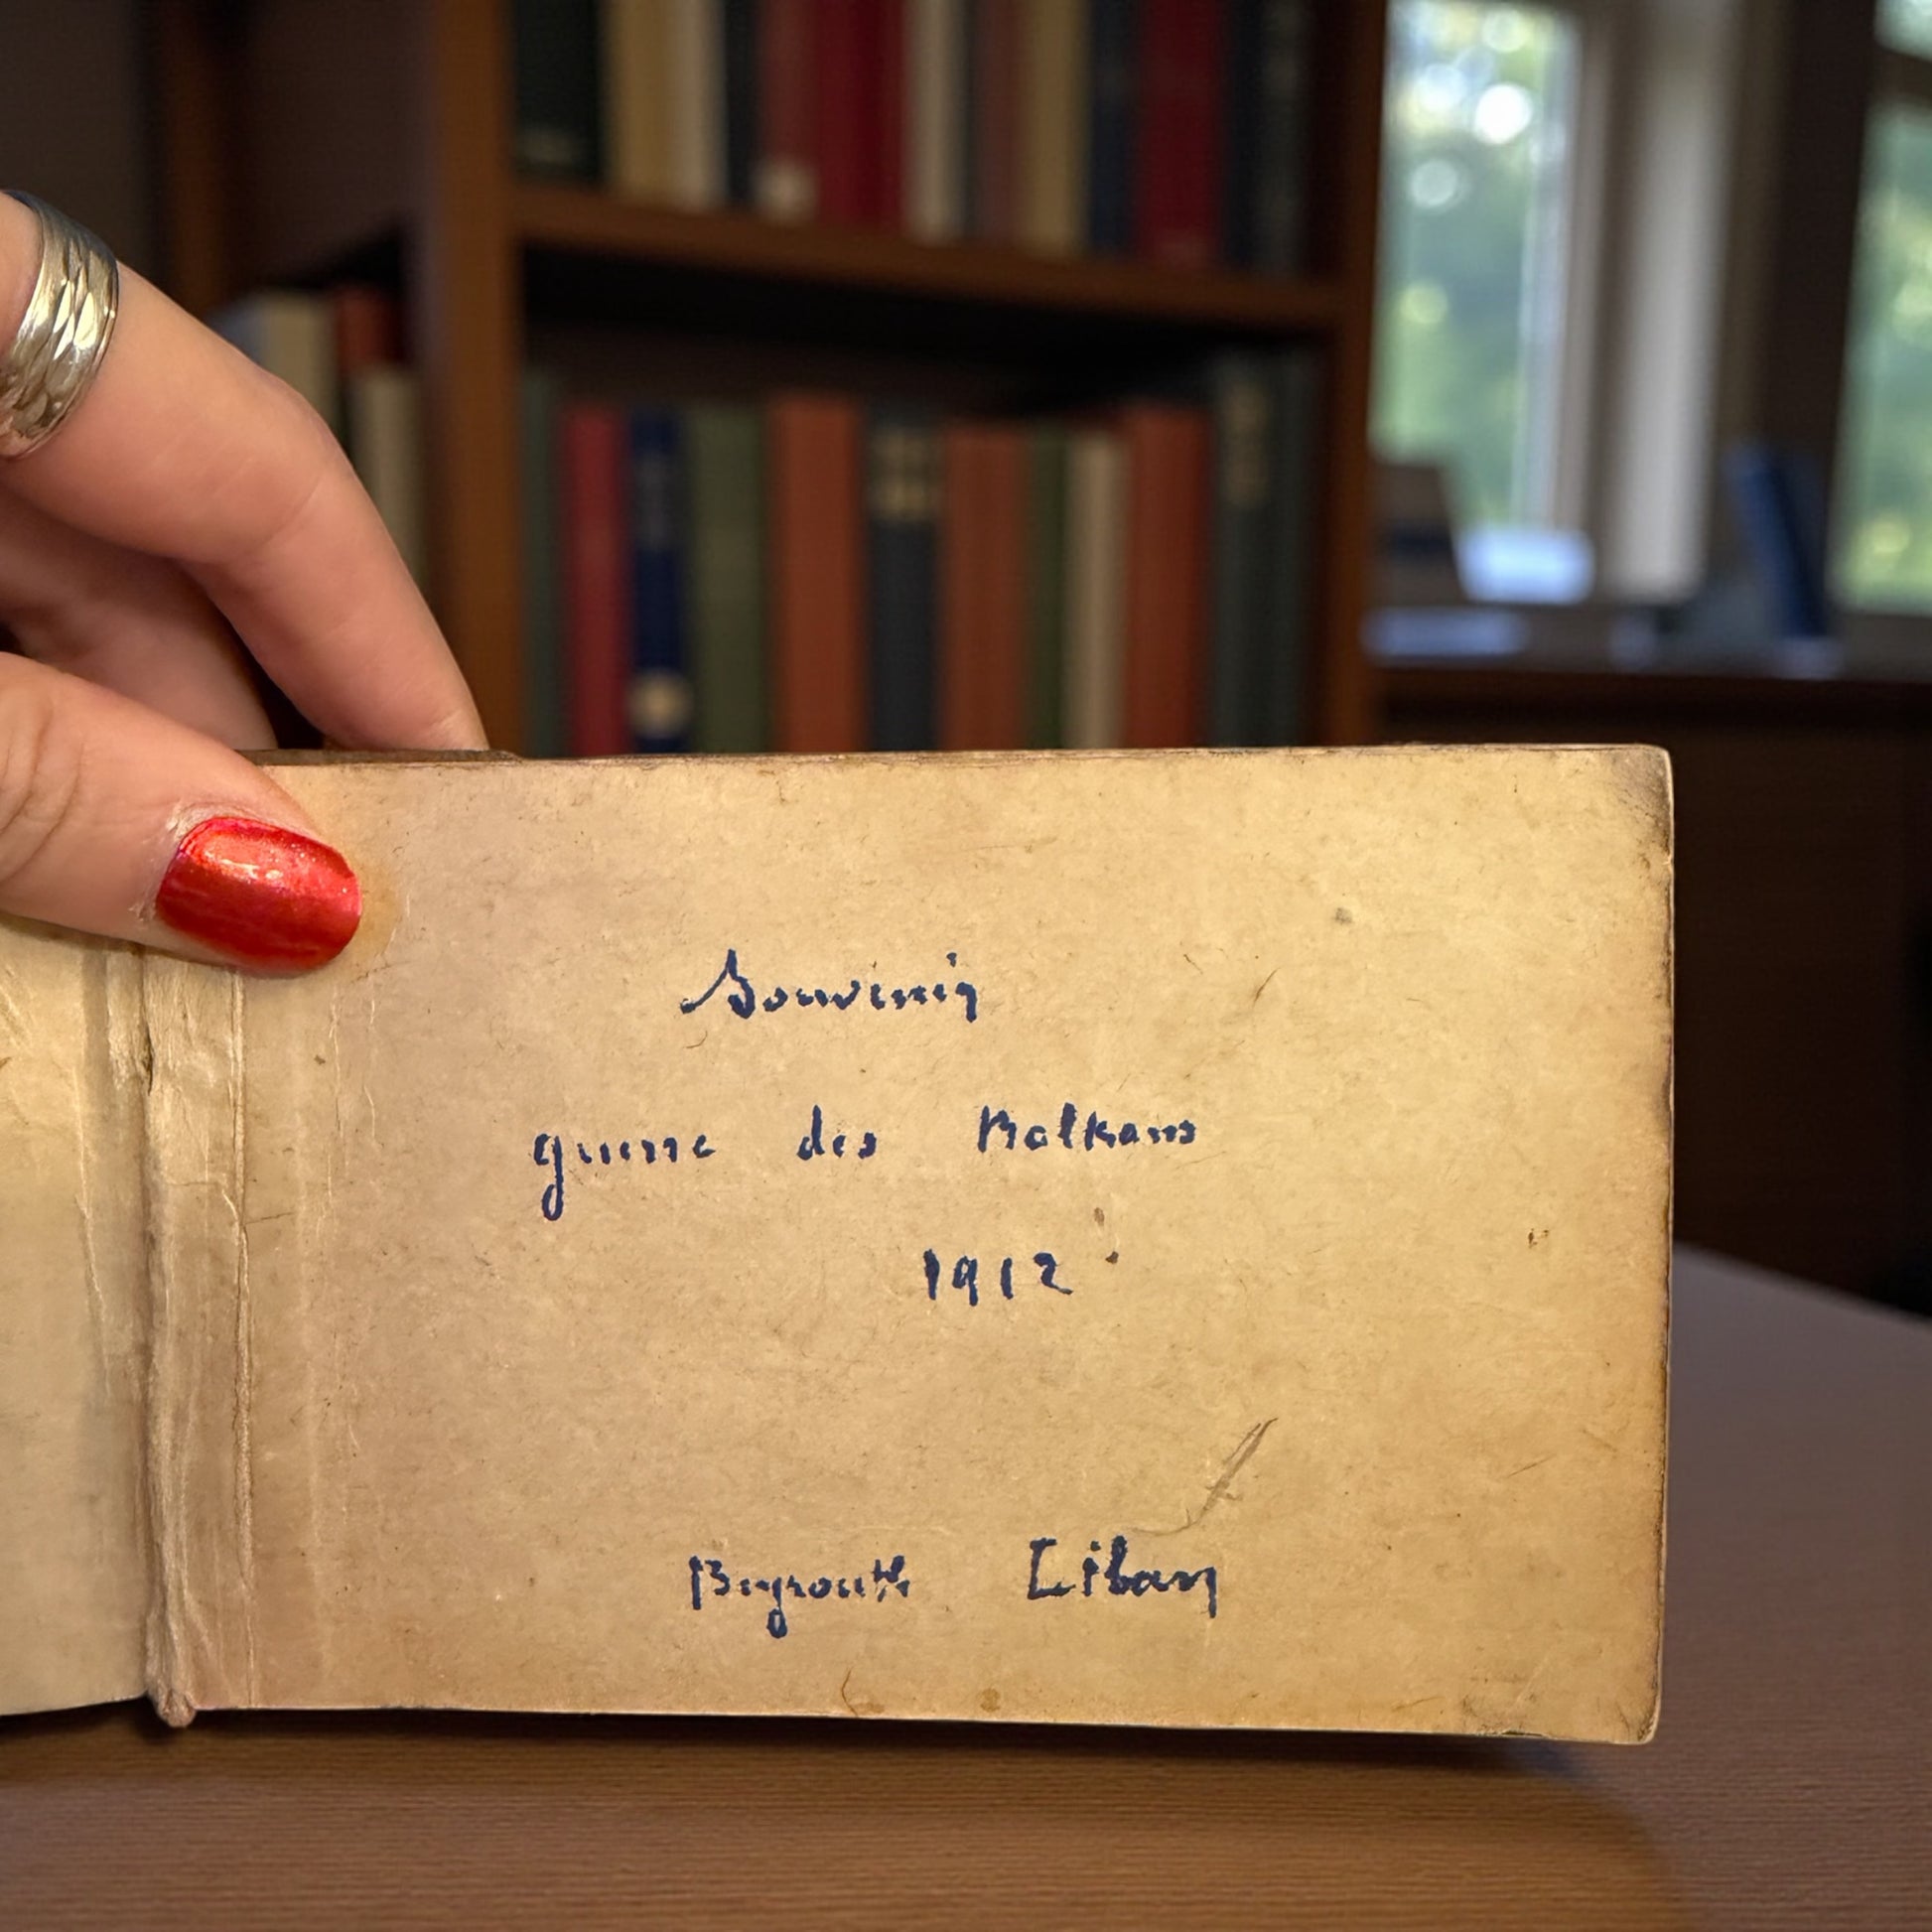 Souvenir
guerre des Balkans
1912
Beyrouth Liban